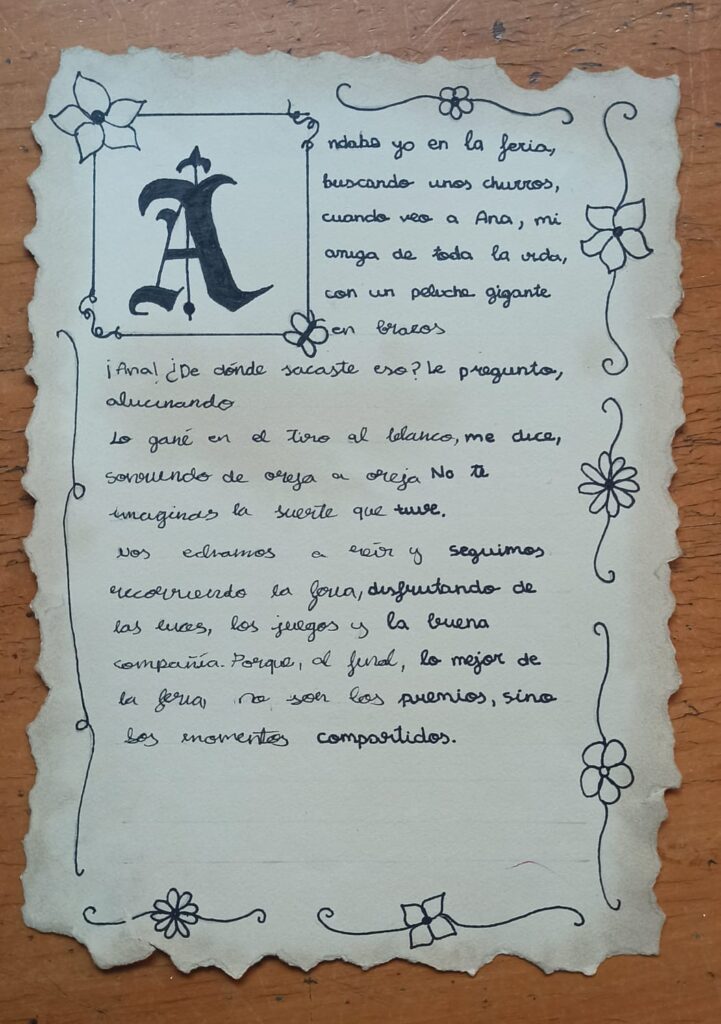 A
ndaba yo en la feria,
buscando unos churros,
cuando veo a Ana, mi
amiga de toda la vida,
con un peluche gigante
en brazos
¡Ana! ¿De dónde sacaste eso? Le pregunto,
alucinando
Lo gané en el tiro al blanco, me dice,
sonriendo de oreja a oreja No te
imaginas la suerte que tuve.
Nos echamos a reír y seguimos
recorriendo la feria, disfrutando de
las luces, los juegos y la buena
compañía. Porque, al final, lo mejor de
la feria, no son los premios, sino
los momentos compartidos.